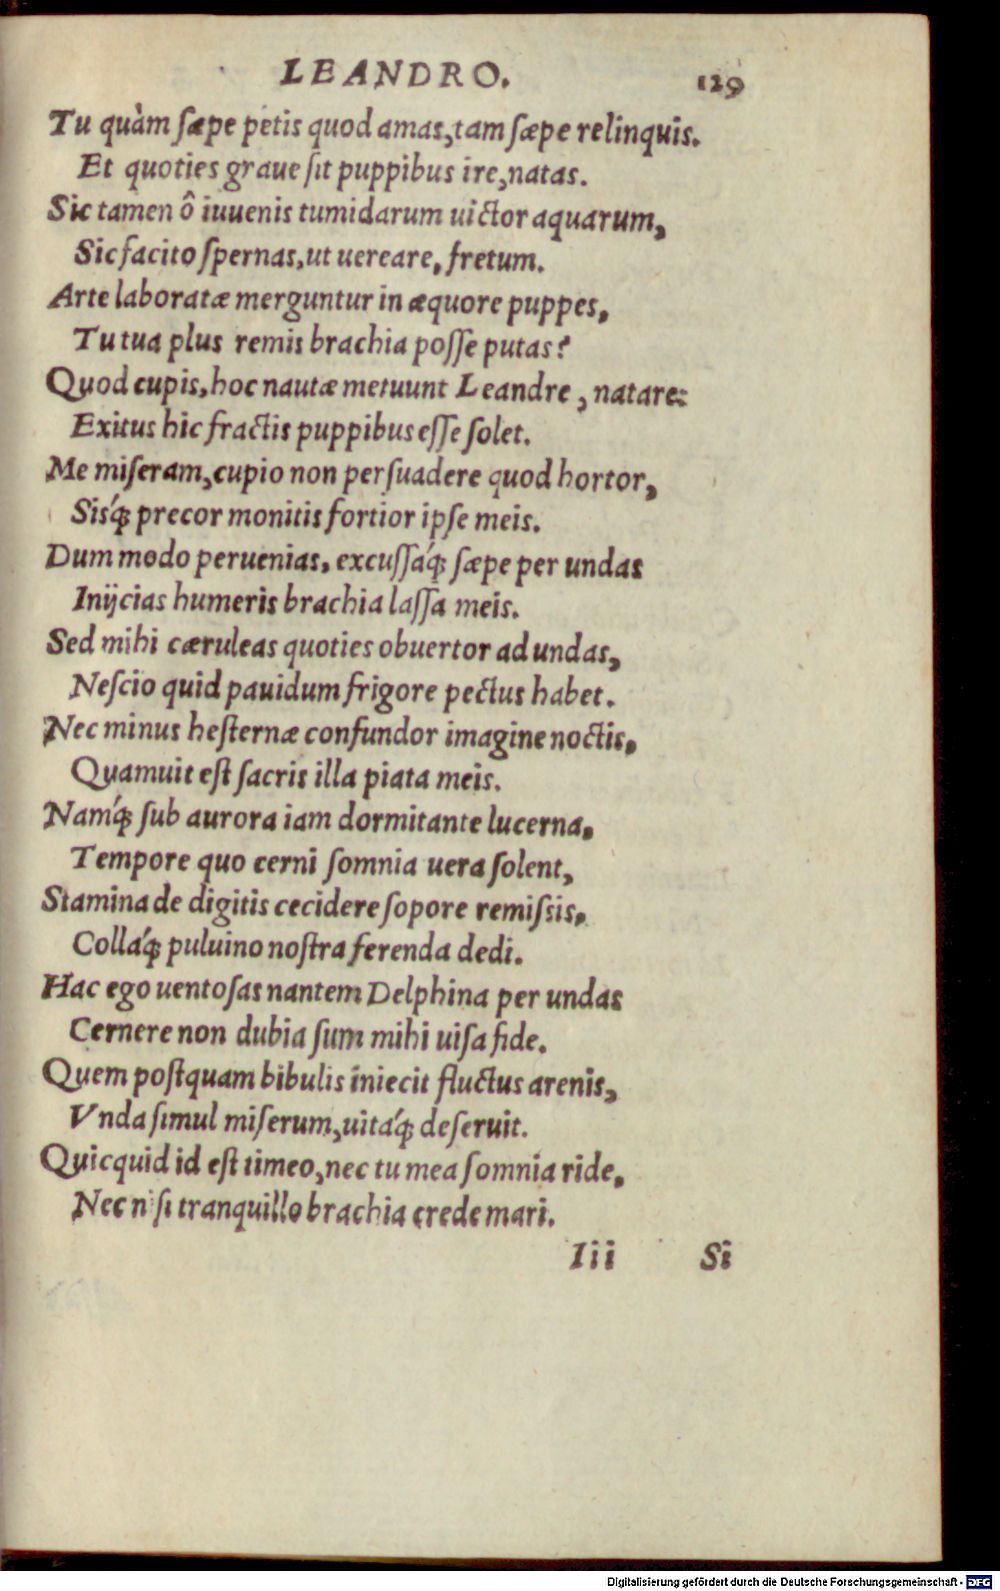 LEANDRO. 129
Tu quàm sæpe petis quod amas, tam sæpe relinquis.
Et quoties graue sit puppibus ire, natas.
Sic tamen ô iuuenis tumidarum uictor aquarum,
Sic facito spernas, ut uereare, fretum.
Arte laboratæ merguntur in æquore puppes,
Tu tua plus remis brachia posse putas?
Quod cupis, hoc nautæ metuunt Leandre, natare:
Exitus hic fractis puppibus esse solet.
Me miseram, cupio non persuadere quod hortor,
Sisq́; precor monitis fortior ipse meis.
Dum modo peruenias, excussaq́; sæpe per undas
Inijcias humeris brachia lassa meis.
Sed mihi cæruleas quoties obuertor ad undas,
Nescio quid pauidum frigore pectus habet.
Nec minus hesternæ confundor imagine noctis,
Quamuit est sacris illa piata meis.
Namq́; sub aurora iam dormitante lucerna,
Tempore quo cerni somnia uera solent,
Stamina de digitis cecidere sopore remissis,
Collaq́; puluino nostra ferenda dedi.
Hac ego uentosas nantem Delphina per undas
Cernere non dubia sum mihi uisa fide.
Quem postquam bibulis iniecit fluctus arenis,
Vnda simul miserum, uitaq́; deseruit.
Quicquid id est timeo, nec tu mea somnia ride,
Nec nisi tranquillo brachia crede mari.
I iii Si
Digitalisierung gefördert durch die Deutsche Forschungsgemeinschaft - DFG